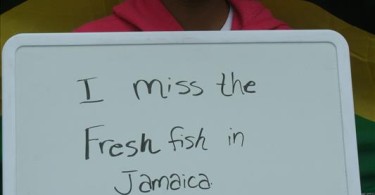 I miss the
Fresh fish in
Jamaica.